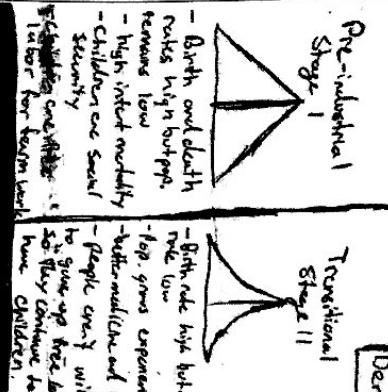 Pre-industrial
Stage I
- Birth and death
rates high but pop.
remains low
- high infant mortality
- Children are social
security
labor for farm work
Transitional
Stage II
- Birth rate high but
rate low
- Pop. grows exponen
- better medicine and
- people aren't wil
to give up free l
so they continue to
have children
Der